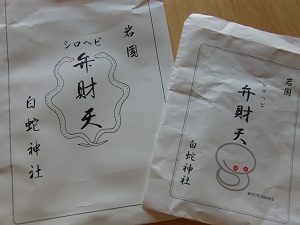 岩国
シロヘビ
弁財天
白蛇神社
岩国
シロヘビ
弁財天
白蛇神社
WHITE SNAKE